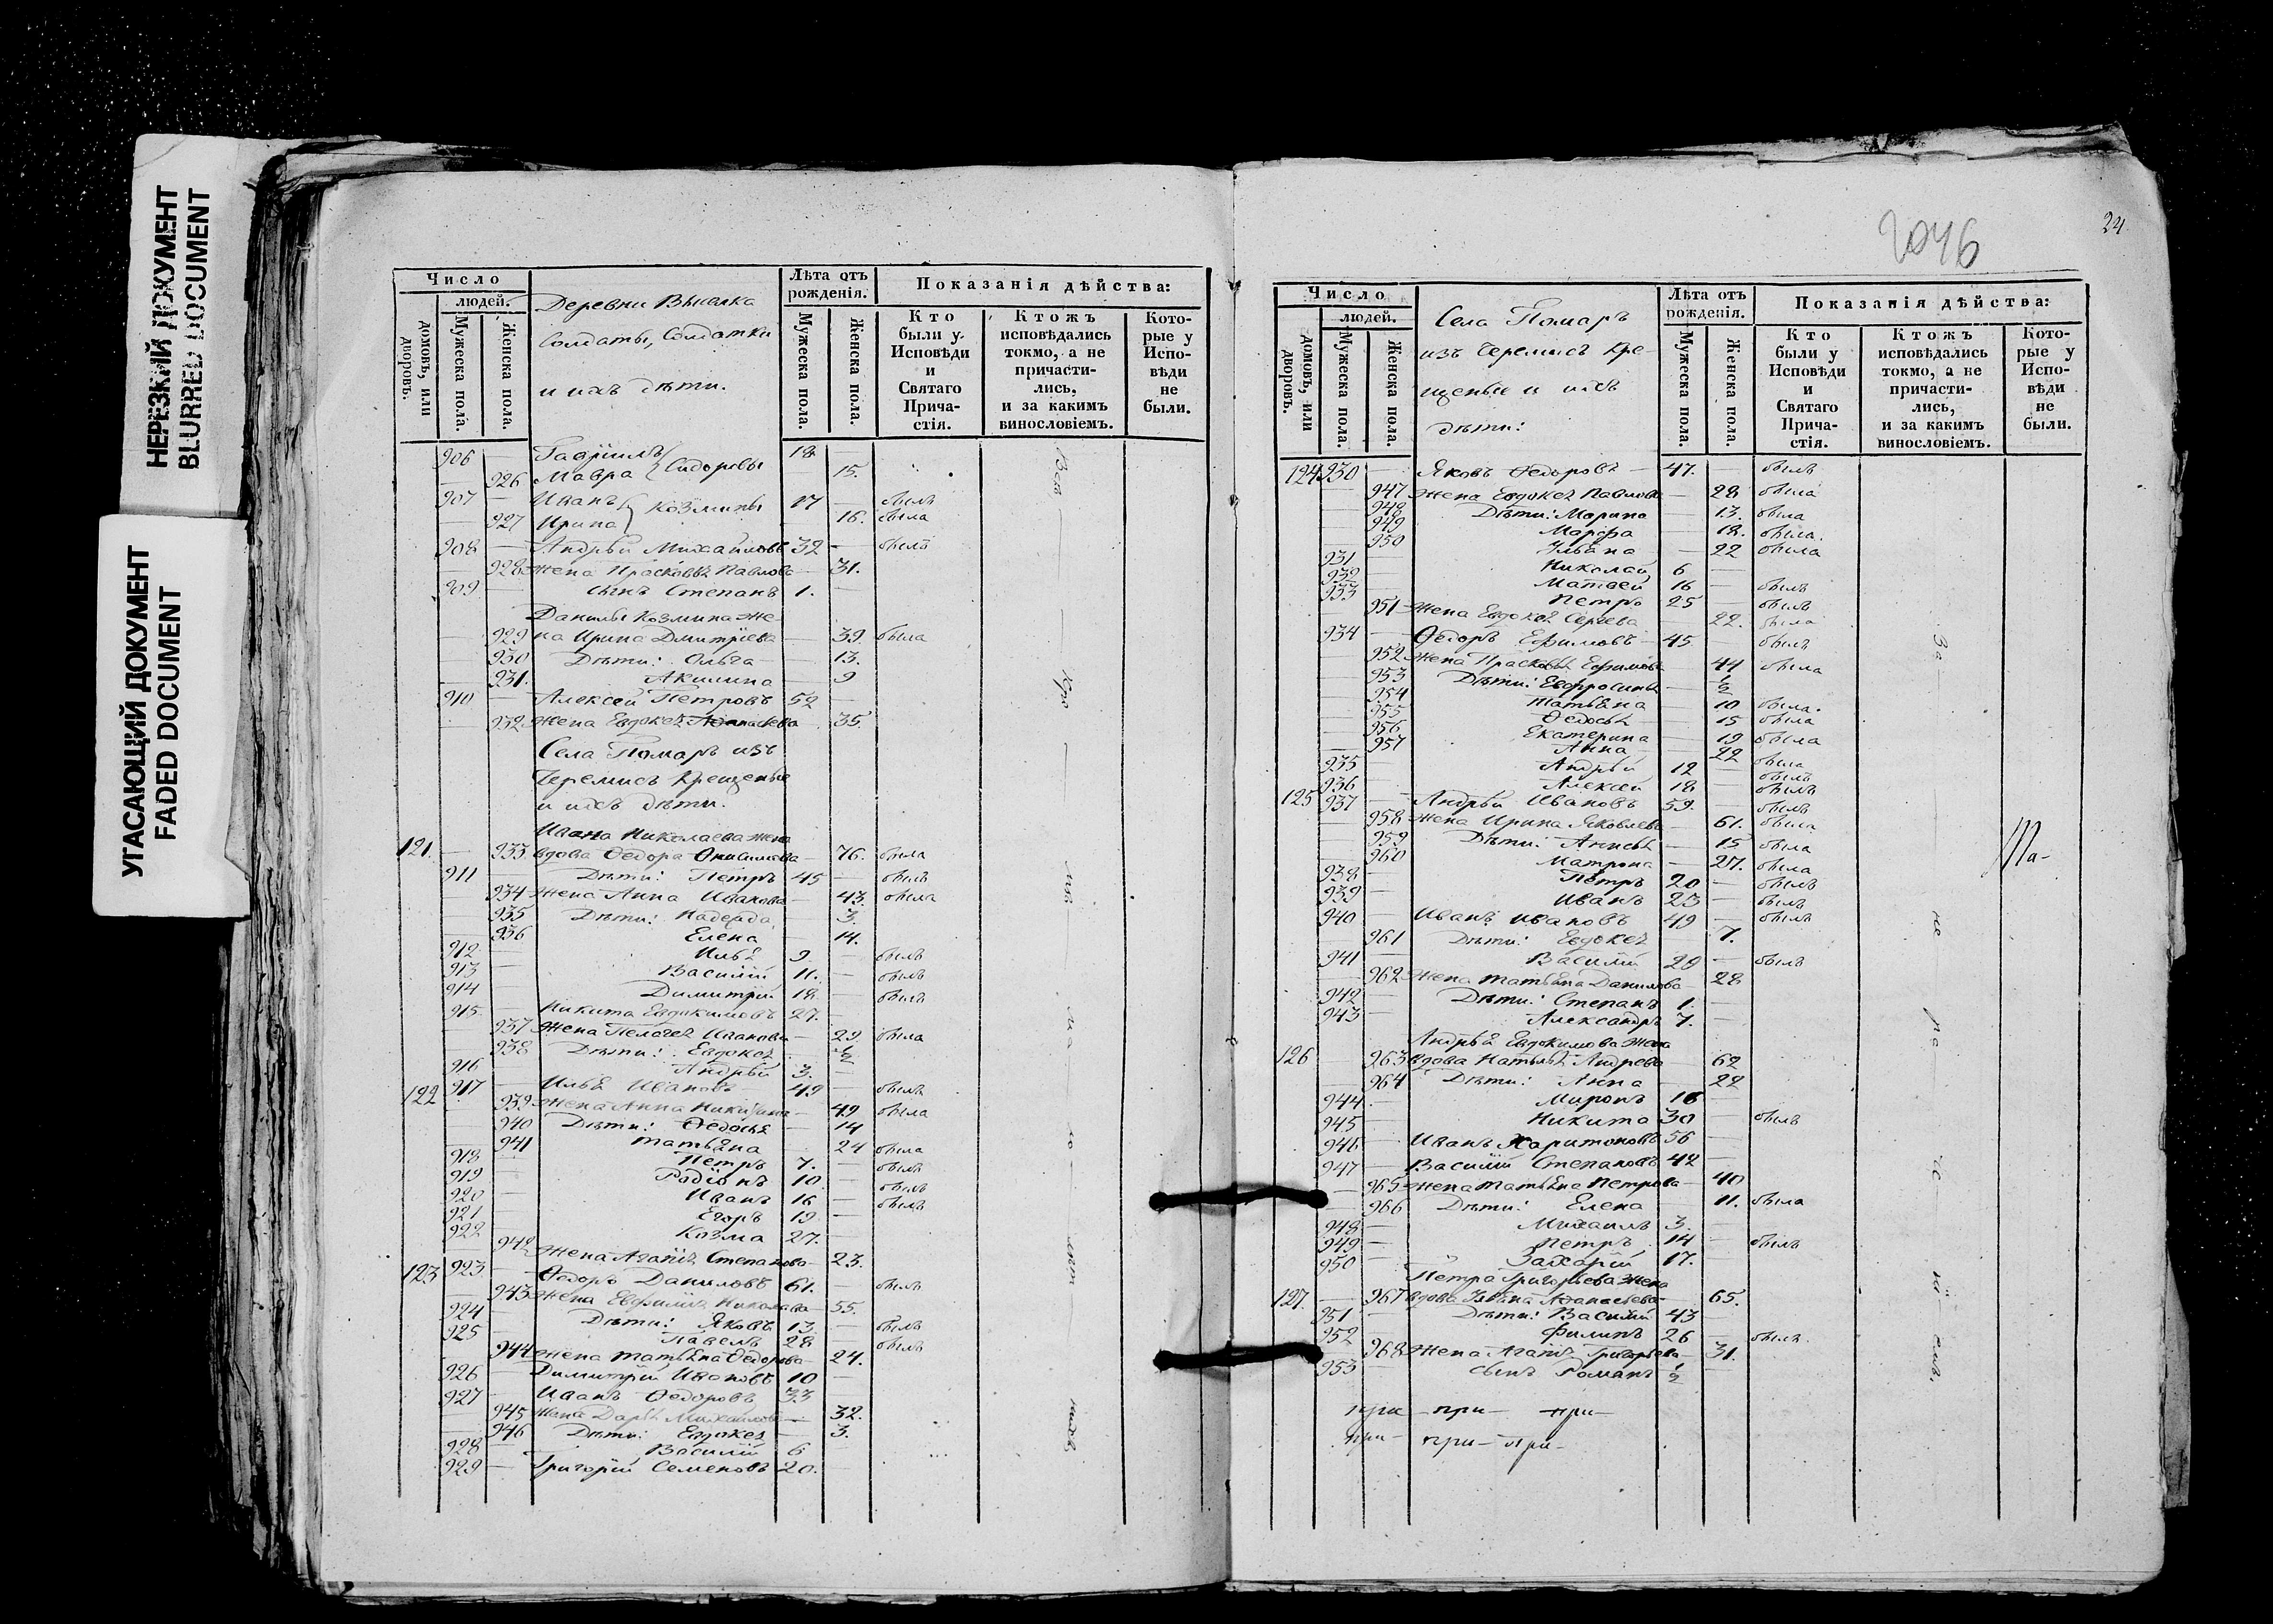 НЕРЕЗКИЙ ДОКУМЕНТ
BLURRED DOCUMENT
УГАСАЮЩИЙ ДОКУМЕНТ
FADED DOCUMENT
Число
людей.
домовъ, или дворовъ.
Мужеска пола.
Женска пола.
Деревни Выселка
Солдаты, Солдатки
и ихъ дѣти.
Лѣта отъ рожденія.
Мужеска пола.
Женска пола.
Показанія дѣйства:
Кто были у Исповѣди и Святаго Прича-стія.
Ктожъ исповѣдались токмо, а не причасти-лись, и за какимъ винословіемъ.
Кото-рые у Испо-вѣди не были.
906 — Гавріилъ 18
926 Мавра } Сидоровы 15.
907 — Иванъ 17 — былъ
927 Ирина } Козмины 16. была
908 — Андрѣй Михайловъ 32 — былъ
928 Жена Прасковья Павлова — 31.
909 — сынъ Степанъ 1. —
Данилы Козмина же-
929 на Ирина Дмитріева — 39 была
930 Дѣти: Ольга — 13.
931. Акилина — 9
910 — Алексей Петровъ 52
932 Жена Евдокея 35.
Села Помаръ изъ
Черемисъ Крещеные
и ихъ дѣти.
Ивана Николаева жена
121. — 933 вдова Федора Онисимова — 76. была
911 Дѣти: Петръ 45 — былъ
934 Жена Анна Иванова — 43. была
935 Дѣти: Надежда 3.
936 Елена 14.
912 — Илья 9 — былъ
913 — Василій 11. — былъ
914 — Димитрій 18 — былъ
915 Никита Евдокимовъ 27. —
937 Жена Пелагея Иванова — 29. была
938 Дѣти: Евдокея ½
916 — Андрѣй 3. —
122 917 — Илья Ивановъ 49 — былъ
939 Жена Анна Никитина — 49 была
940 Дѣти: Федосья — 14
941 Татьяна 24 была
918 — Петръ 7. — былъ
919 — Родіонъ 10 — былъ
920 — Иванъ 16 — былъ
921 Егоръ 19 —
922 — Козма 27.
942 Жена Агапія Степанова — 23.
123 923 — Федоръ Даниловъ 61. — былъ
943 Жена Евфимія Николаева — 55.
924 Дѣти: Яковъ 13 — былъ
925 — Павелъ 28 былъ
944 Жена Татьяна Федорова — 24.
926 — Димитрій Ивановъ 10 —
927 — Иванъ Федоровъ 33
945 Жена Дарья Михайлова — 32.
946 Дѣти: Евдокея — 3.
928 — Василій 6
929 — Григорій Семеновъ 20.
2046
24
Число
людей.
домовъ, или дворовъ.
Мужеска пола.
Женска пола.
Села Помаръ
изъ Черемисъ Кре-
щеные и ихъ
дѣти:
Лѣта отъ рожденія.
Мужеска пола.
Женска пола.
Показанія дѣйства:
Кто были у Исповѣди и Святаго Прича-стія.
Ктожъ исповѣдались токмо, а не причасти-лись, и за какимъ винословіемъ.
Кото-рые у Испо-вѣди не были.
124 930 — Яковъ Федоровъ — 47. былъ
947 Жена Евдокея Павлова — 28 была
948 Дѣти: Марина — 13. была
949 Марфа — 18. была.
950 Ульяна — 22 была
931 — Николай 6 —
932 — Матвей 16 — былъ
933 Петръ 25 — былъ
951 Жена Евдокея Сергева 22. была
934 — Федоръ Ефимовъ — 45 былъ
952 Жена Прасковья Ефимова 44 была
953 Дѣти: Евфросинья — ½
954 Татьяна — 10 была.
955 Федосья — 15 была
956 Екатерина — 19 была
957 Анна — 22 была
935 — Андрѣй 12 — былъ
936 — Алексей 18 — былъ
125 937 — Андрѣй Ивановъ 59. — былъ
958 Жена Ирина Яковлева — 61. была
959 Дѣти: Анисья — 15 была
960 Матрона — 27. была
938 — Петръ 20 — былъ
939 — Иванъ 23 — былъ
940 — Иванъ Ивановъ 49 — былъ
961 Дѣти: Евдокея — 7.
941 — Василій 29 — былъ
962 Жена Татьяна Данилова 28
942 — Дѣти: Степанъ 1. —
943 — Александръ 7. —
Андрѣя Евдокимова жена
126 963 вдова Наталья Андрева 62
964 Дѣти: Анна — 22
944 — Миронъ 16
945 — Никита 30 — былъ
946 — Иванъ Харитоновъ 56 —
947 — Василій Степановъ 42 —
965 Жена Татьяна Петрова — 40
966 Дѣти: Елена 11. была
948 — Михаилъ 3. —
949 — Петръ 14 — былъ
950 — Захарій 17.
Петра Григорьева жена
127. — 967 вдова Ульяна Афанасьева — 65.
951 — Дѣти: Василій 43 —
952 Филипъ 26 — былъ.
968 Жена Агапія Григорьева — 31.
953 сынъ Романъ ½ —
при — при — при —
при — при — при —